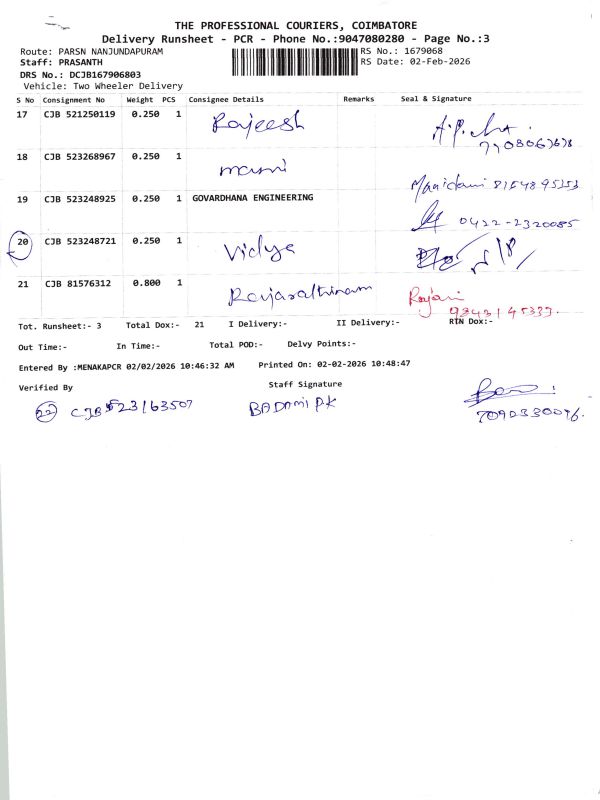 THE PROFESSIONAL COURIERS, COIMBATORE
Delivery Runsheet - PCR - Phone No.:9047080280 - Page No.:3
Route: PARSN NANJUNDAPURAM RS No.: 1679068
Staff: PRASANTH RS Date: 02-Feb-2026
DRS No.: DCJB167906803
Vehicle: Two Wheeler Delivery
S No Consignment No Weight PCS Consignee Details Remarks Seal & Signature
17 CJB 521250119 0.250 1 Rajeesh
18 CJB 523268967 0.250 1 mani
8154895353
19 CJB 523248925 0.250 1 GOVARDHANA ENGINEERING
0422-2320085
20 CJB 523248721 0.250 1 Vidya
21 CJB 81576312 0.800 1 Rajarathinam Rajani
9843145339.
Tot. Runsheet:- 3 Total Dox:- 21 I Delivery:- II Delivery:- RTN Dox:-
Out Time:- In Time:- Total POD:- Delvy Points:-
Entered By :MENAKAPCR 02/02/2026 10:46:32 AM Printed On: 02-02-2026 10:48:47
Verified By Staff Signature
22 CJB 523163507 BADAMI PK
7090330096.